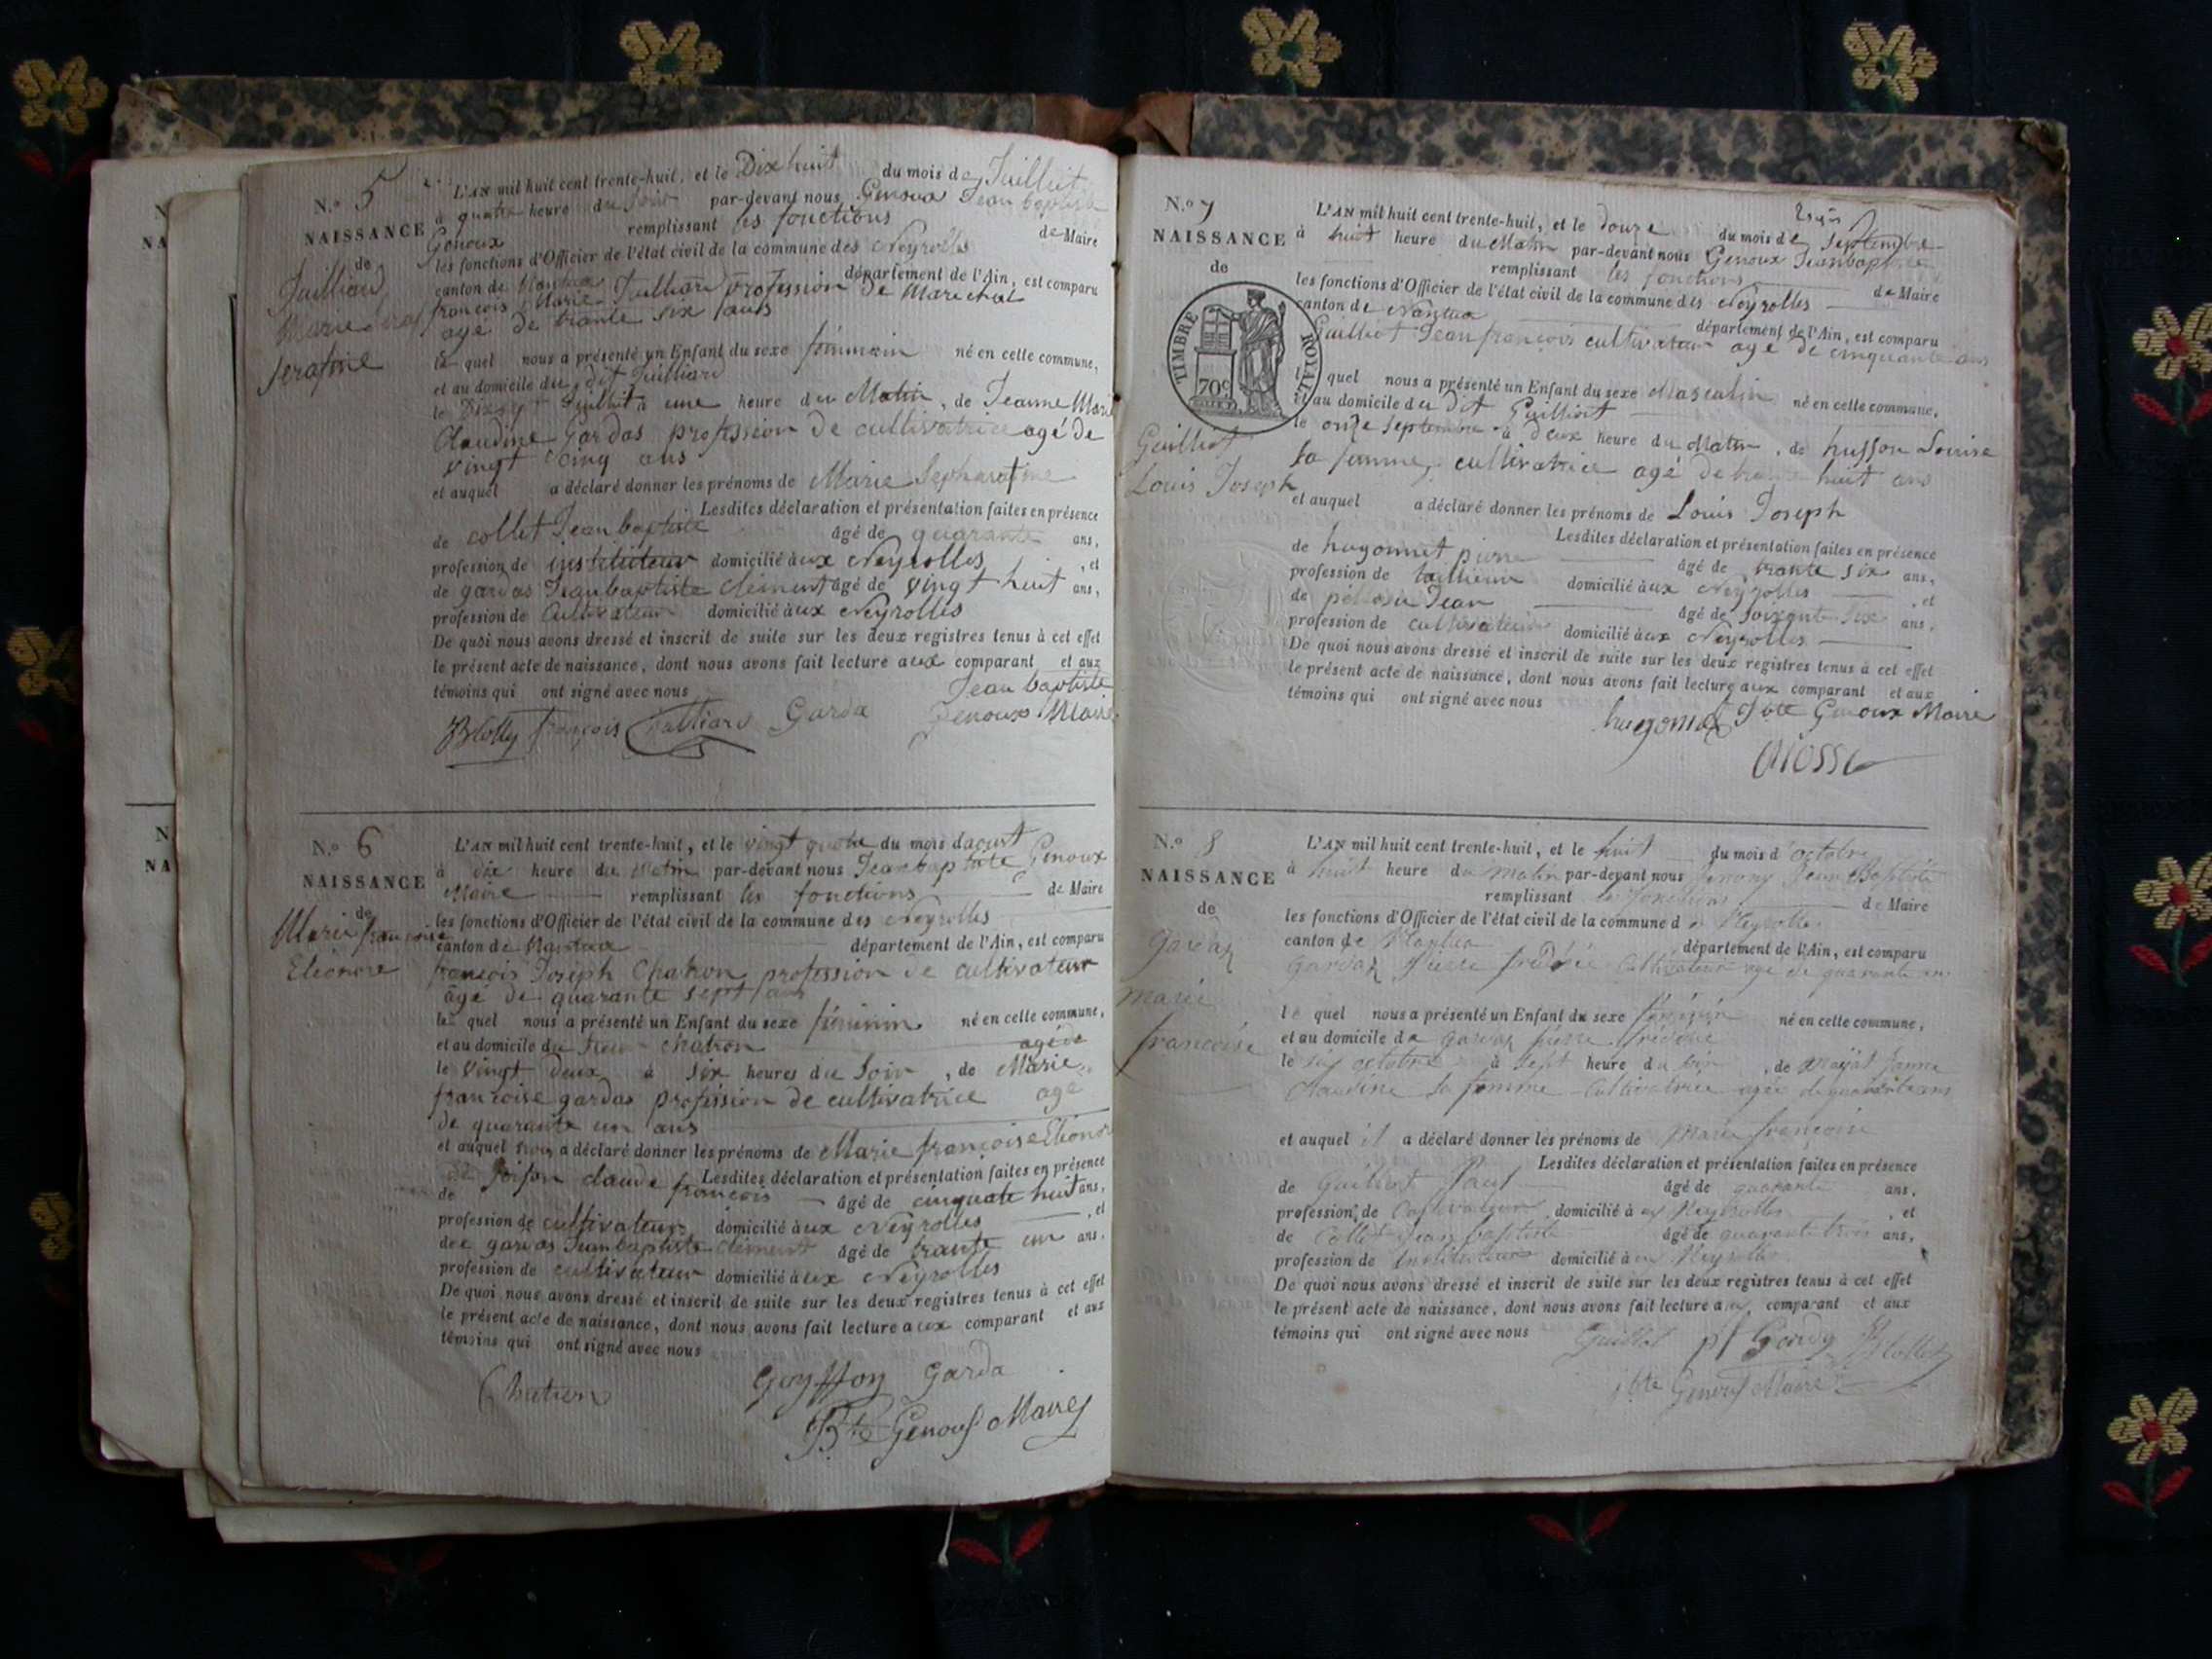 N.º 5
NAISSANCE
de
Juilliard
Marie
serafine
L'AN mil huit cent trente-huit, et le Dix huit du mois de Juilliet
à quatre heure du soir par-devant nous Genoux Jean baptiste
Genoux remplissant les fonctions de Maire
les fonctions d'Officier de l'état civil de la commune des Neyrolles
canton de Nantua département de l'Ain, est comparu
françois Marie Juilliard profession de Marechal
agé de trante six ans
le quel nous a présenté un Enfant du sexe féminin né en cette commune,
et au domicile du dit Juilliard
le Juilliet à une heure du Matin, de Jeanne Marie
Claudine Gardas profession de cultivatrice agé de
vingt cinq ans
et auquel a déclaré donner les prénoms de Marie
Lesdites déclaration et présentation faites en présence
de collet Jean baptiste âgé de quarante ans,
profession de instituteur domicilié aux Neyrolles, et
de gardas Jean baptiste Clément âgé de vingt huit ans,
profession de Cultivateur domicilié aux Neyrolles
De quoi nous avons dressé et inscrit de suite sur les deux registres tenus à cet effet
le présent acte de naissance, dont nous avons fait lecture aux comparant et aux
témoins qui ont signé avec nous Jean baptiste
françois Juilliard Garda Genoux Maire
N.º 6
NAISSANCE
de
Marie françoise
Eléonore
L'AN mil huit cent trente-huit, et le vingt quatre du mois d'aoust
à dix heure du Matin par-devant nous Jean baptiste Genoux
Maire remplissant les fonctions de Maire
les fonctions d'Officier de l'état civil de la commune des Neyrolles
canton de Nantua département de l'Ain, est comparu
françois Joseph Chatron profession de cultivateur
âgé de quarante sept ans
le quel nous a présenté un Enfant du sexe féminin né en cette commune,
et au domicile du chatron agé de
le vingt deux à six heures du soir, de Marie
françoise gardas profession de cultivatrice agé
de quarante un ans
et auquel nous a déclaré donner les prénoms de Marie françoise Eléonore
Lesdites déclaration et présentation faites en présence
de claude françois âgé de cinquate huit ans,
profession de cultivateur domicilié aux Neyrolles, et
de gardas Jean baptiste clément âgé de trante un ans,
profession de cultivateur domicilié aux Neyrolles
De quoi nous avons dressé et inscrit de suite sur les deux registres tenus à cet effet
le présent acte de naissance, dont nous avons fait lecture aux comparant et aux
témoins qui ont signé avec nous
Garda
Bte Genoux Maire
N.º 7
NAISSANCE
de
TIMBRE ROYAL
70c
Guilliot
Louis Joseph
L'AN mil huit cent trente-huit, et le douze du mois de Septembre
à huit heure du Matin par-devant nous Genoux Jean baptiste
remplissant les fonctions de Maire
les fonctions d'Officier de l'état civil de la commune des Neyrolles
canton de Nantua département de l'Ain, est comparu
Guilliot Jean françois cultivateur agé de cinquante ans
le quel nous a présenté un Enfant du sexe Masculin né en cette commune,
et au domicile du dit Guilliot
le onze septembre à deux heure du Matin, de husson Louise
sa femme, cultivatrice agé de trante huit ans
et auquel a déclaré donner les prénoms de Louis Joseph
Lesdites déclaration et présentation faites en présence
de hugonnet pierre âgé de trante six ans,
profession de domicilié aux Neyrolles, et
de Jean âgé de soixante six ans,
profession de cultivateur domicilié aux Neyrolles
De quoi nous avons dressé et inscrit de suite sur les deux registres tenus à cet effet
le présent acte de naissance, dont nous avons fait lecture aux comparant et aux
témoins qui ont signé avec nous
Genoux Maire
N.º 8
NAISSANCE
de
Gardaz
Marie
francoise
L'AN mil huit cent trente-huit, et le huit du mois d'octobre
à huit heure du matin par-devant nous Jean Baptiste
remplissant les fonctions de Maire
les fonctions d'Officier de l'état civil de la commune des Neyrolles
canton de Nantua département de l'Ain, est comparu
Gardaz Pierre cultivateur agé de quarante ans
le quel nous a présenté un Enfant du sexe féminin né en cette commune,
et au domicile de Gardaz pierre
le six octobre à sept heure du soir, de
Claudine sa femme cultivatrice agée de quarante ans
et auquel il a déclaré donner les prénoms de Marie francoise
Lesdites déclaration et présentation faites en présence
de Guilliot Paul âgé de quarante ans,
profession de Cultivateur domicilié aux Neyrolles, et
de Collet Jean baptiste âgé de quarante trois ans,
profession de Instituteur domicilié aux Neyrolles
De quoi nous avons dressé et inscrit de suite sur les deux registres tenus à cet effet
le présent acte de naissance, dont nous avons fait lecture aux comparant et aux
témoins qui ont signé avec nous
Maire